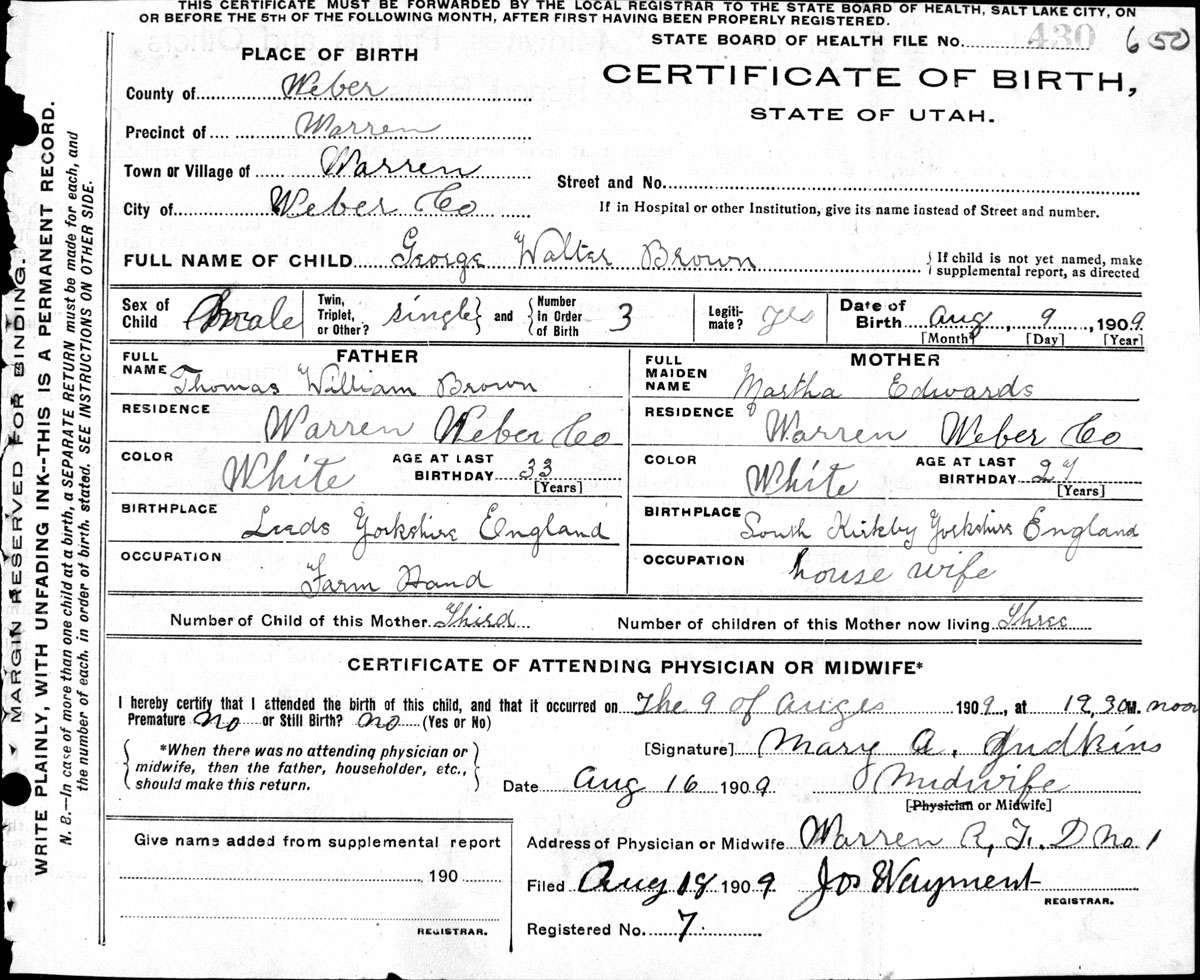 THIS CERTIFICATE MUST BE FORWARDED BY THE LOCAL REGISTRAR TO THE STATE BOARD OF HEALTH, SALT LAKE CITY, ON
OR BEFORE THE 5TH OF THE FOLLOWING MONTH, AFTER FIRST HAVING BEEN PROPERLY REGISTERED.
STATE BOARD OF HEALTH FILE No. 430 650
PLACE OF BIRTH
CERTIFICATE OF BIRTH,
STATE OF UTAH.
County of Weber
Precinct of Warren
Town or Village of Warren
Street and No.
City of Weber Co
If in Hospital or other Institution, give its name instead of Street and number.
FULL NAME OF CHILD George Walter Brown
{ If child is not yet named, make supplemental report, as directed
Sex of Child male
Twin, Triplet, or Other? single } and { Number in Order of Birth 3
Legitimate? yes
Date of Birth Aug, 9, 1909.
[Month] [Day] [Year]
FATHER
FULL NAME Thomas William Brown
MOTHER
FULL MAIDEN NAME Martha Edwards
RESIDENCE Warren Weber Co
RESIDENCE Warren Weber Co
COLOR White AGE AT LAST BIRTHDAY 33 [Years]
COLOR White AGE AT LAST BIRTHDAY 27 [Years]
BIRTHPLACE Leeds Yorkshire England
BIRTHPLACE South Kirkby Yorkshire England
OCCUPATION Farm Hand
OCCUPATION house wife
Number of Child of this Mother Third
Number of children of this Mother now living Three
CERTIFICATE OF ATTENDING PHYSICIAN OR MIDWIFE*
I hereby certify that I attended the birth of this child, and that it occurred on The 9 of Auges 1909, at 12,30 M. noon
Premature No or Still Birth? No (Yes or No)
{ *When there was no attending physician or midwife, then the father, householder, etc., should make this return. }
[Signature] Mary A. Judkins
Date Aug 16 1909 Midwife
[Physician or Midwife]
Give name added from supplemental report
190
REGISTRAR.
Address of Physician or Midwife Warren R, F. D No. 1
Filed Aug 18 1909 Jos Wayment
REGISTRAR.
Registered No. 7
MARGIN RESERVED FOR BINDING.
WRITE PLAINLY, WITH UNFADING INK--THIS IS A PERMANENT RECORD.
N. B.—In case of more than one child at a birth, a SEPARATE RETURN must be made for each, and
the number of each, in order of birth, stated. SEE INSTRUCTIONS ON OTHER SIDE.